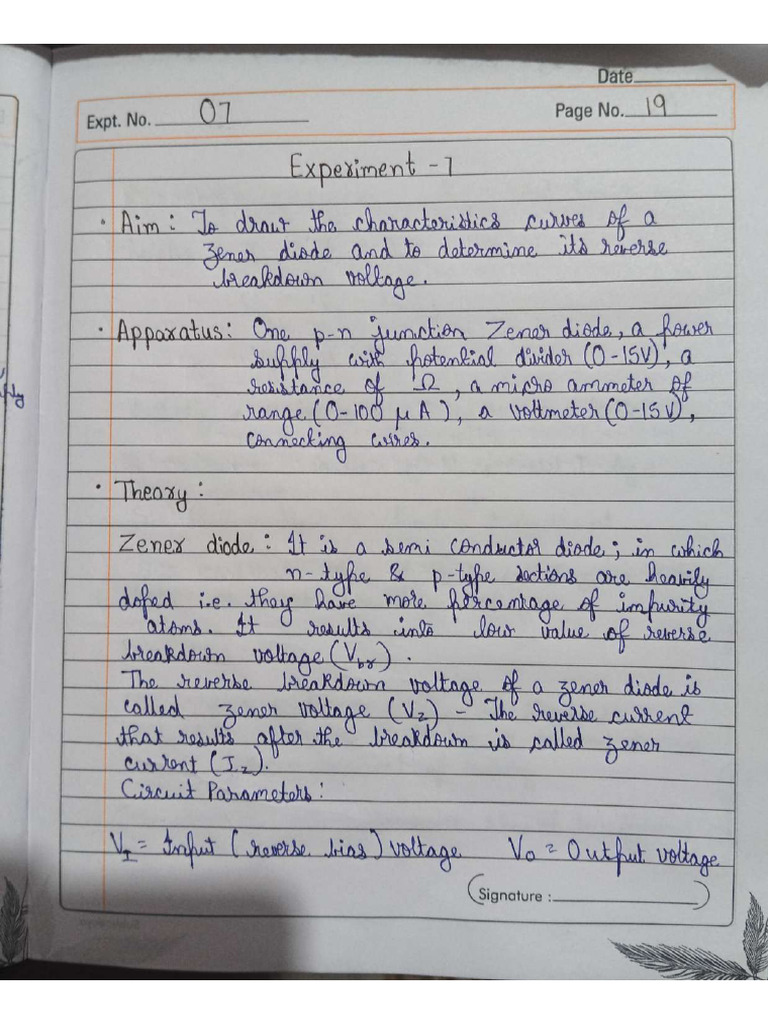 Date
Expt. No. 07
Page No. 19
Experiment - 7
• Aim : To draw the characteristics curves of a
zener diode and to determine its reverse
breakdown voltage.
• Apparatus : One p-n junction Zener diode, a power
supply with potential divider (0-15V), a
resistance of Ω, a micro ammeter of
range (0-100 μA), a voltmeter (0-15V),
connecting wires.
• Theory :
Zener diode : It is a semi conductor diode; in which
n-type & p-type sections are heavily
doped i.e. they have more percentage of impurity
atoms. It results into low value of reverse
breakdown voltage (Vbr).
The reverse breakdown voltage of a zener diode is
called zener voltage (Vz) - The reverse current
that results after the breakdown is called zener
current (Iz).
Circuit Parameters :
VI = Input (reverse bias) voltage VO = Output voltage
Signature :